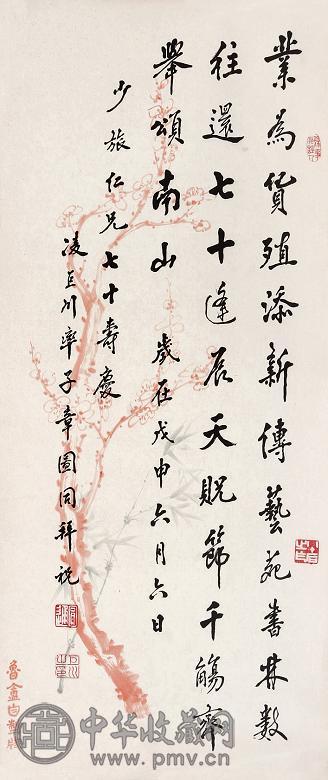 業為貨殖添新傳藝苑書林數
往還七十逢辰天貺節千觴齊
舉頌南山 歲在戊申六月六日
少旅仁兄七十壽慶
凌巨川率子章圖同拜祝
魯盦自製牋
中华收藏网
www.pmv.cn